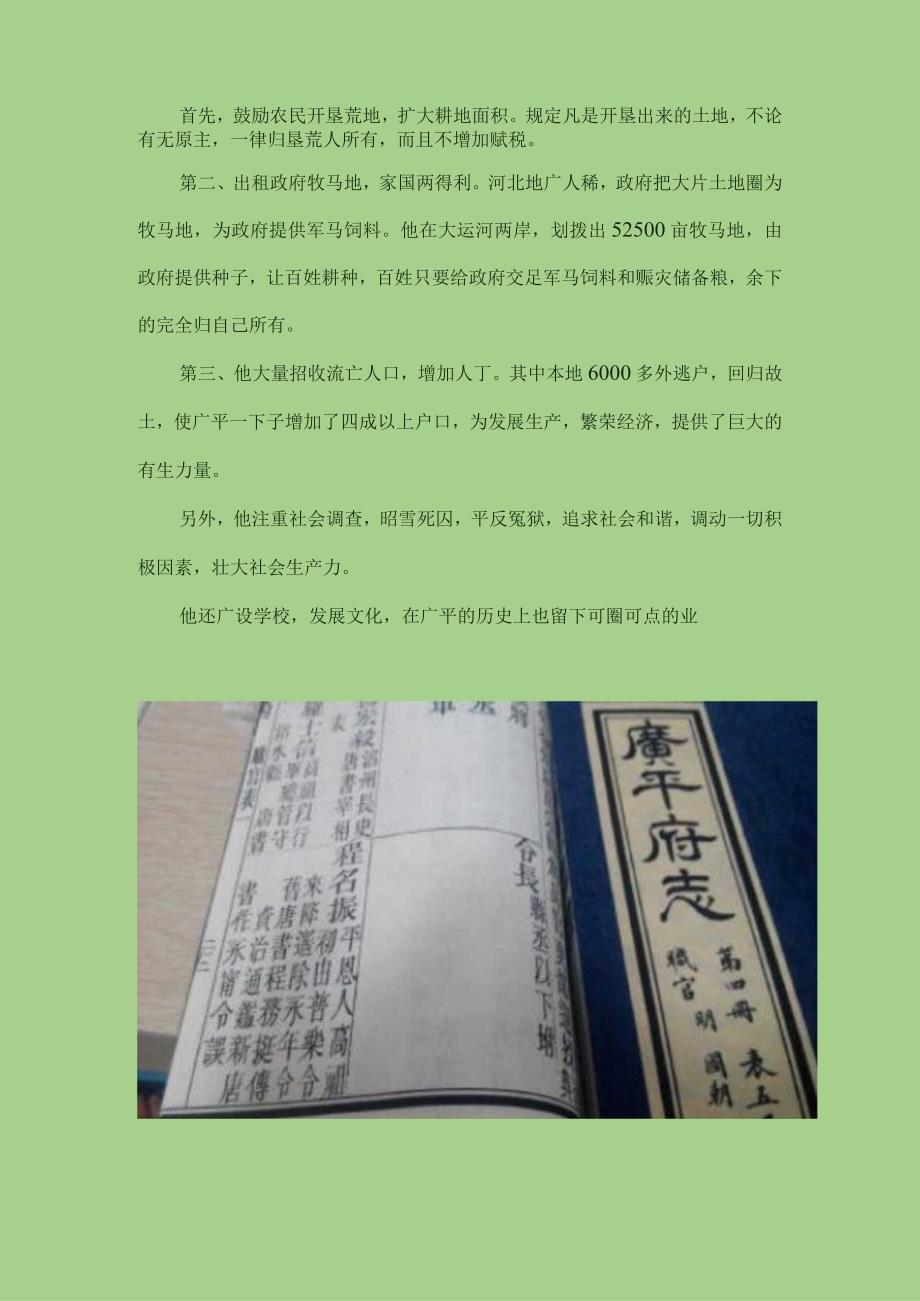 首先，鼓励农民开垦荒地，扩大耕地面积。规定凡是开垦出来的土地，不论
有无原主，一律归垦荒人所有，而且不增加赋税。
第二、出租政府牧马地，家国两得利。河北地广人稀，政府把大片土地圈为
牧马地，为政府提供军马饲料。他在大运河两岸，划拨出 52500 亩牧马地，由
政府提供种子，让百姓耕种，百姓只要给政府交足军马饲料和赈灾储备粮，余下
的完全归自己所有。
第三、他大量招收流亡人口，增加人丁。其中本地 6000 多外逃户，回归故
土，使广平一下子增加了四成以上户口，为发展生产，繁荣经济，提供了巨大的
有生力量。
另外，他注重社会调查，昭雪死囚，平反冤狱，追求社会和谐，调动一切积
极因素，壮大社会生产力。
他还广设学校，发展文化，在广平的历史上也留下可圈可点的业
廣平府志
第四冊 表五
職官 明 國朝
令長縣丞以下增
宏毅 洺州長史
唐書宰相
表
程名振
平恩人高祖
初出普樂令
來降遂除永年令
舊唐書程務挺傳
資治通鑑新唐
書作永甯令誤
職官表一